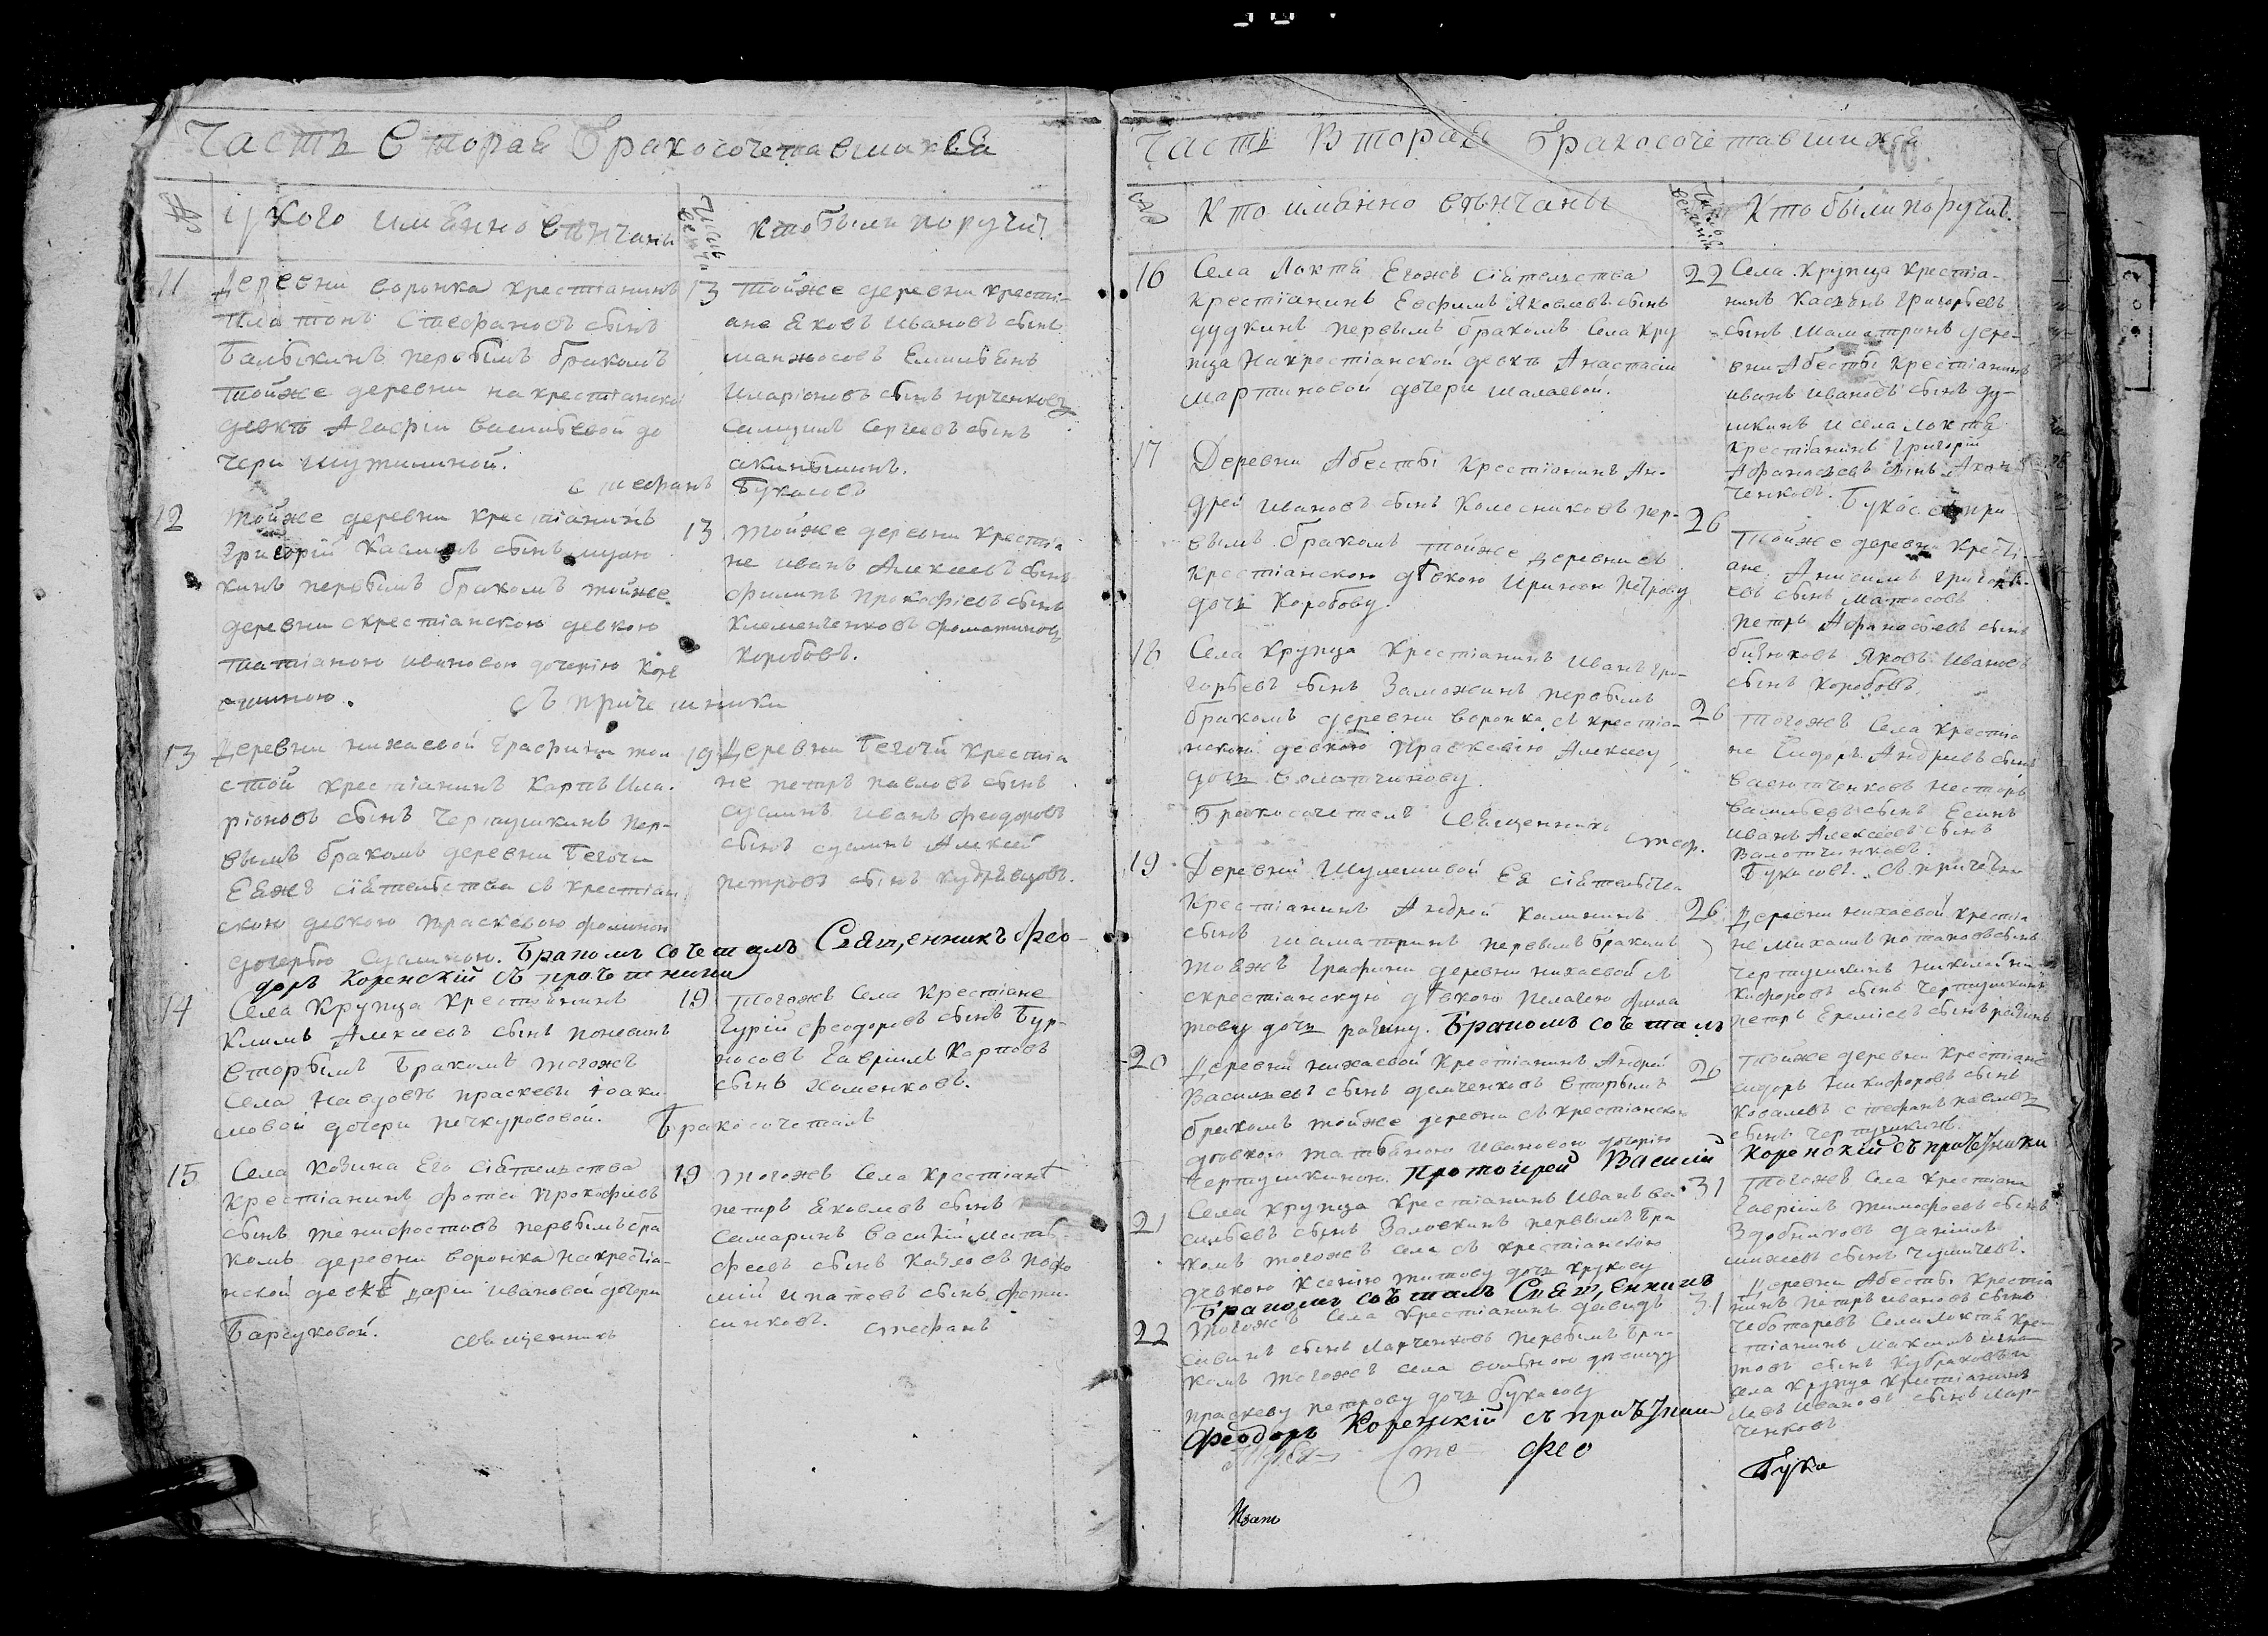 Часть Вторая Бракосочетавшихся
№
кого имянно венчаны
кто были поручит.
11
Деревни воронка крестіанинъ
Платонъ Стефановъ сынъ
Балыкинъ первымъ бракомъ
тойже деревни на крестіанской
девкѣ Агафіи васильевой до
чери шутилиной.
13
тойже деревни кресті-
ане Яковъ Ивановъ сынъ
манжосовъ Емильянъ
Иларіоновъ сынъ
Сергеевъ сынъ
акиньшинъ.
стефанъ Букасовъ
12
тойже деревни крестіанинъ
Григорій сынъ
кинъ первымъ бракомъ тойже
деревни скрестіанскою девкою
татіаною ивановою дочерію
съ причетники
13
тойже деревни крестіа
не иванъ Алексеевъ сынъ
филипъ прокофіевъ сынъ
Клеменченковъ
Коробовъ.
13
Деревни нижаевой Графини тол
стой крестіанинъ Карпъ Ила-
ріоновъ сынъ Чертушкинъ пер-
вымъ бракомъ деревни Бегочи
Еяжъ сіятельства съ крестіан
скою девкою праскевою
дочерью Суслиною. Бракомъ сочеталъ Священникъ Фео-
доръ Коренскій съ причетники
19
Деревни Бегочи крестіа
не петръ павловъ сынъ
суслинъ иванъ феодоровъ
сынъ суслинъ Алексей
петровъ сынъ кудрявцовъ.
14
Села Крупца Крестіанинъ
Климъ Алексеевъ сынъ поневинъ
вторымъ Бракомъ тогожъ
Села На вдовѣ праскевы іоаки
мовой дочери печкуровой.
19
тогожъ Села Крестіане
Гурій феодоровъ сынъ Бур-
носовъ Гавріилъ Карповъ
сынъ Хоменковъ.
Бракосочеталъ
15
Села Козина Его Сіятельства
Крестіанинъ фотей Прокофіевъ
сынъ первымъ бра
комъ деревни воронка на крестіа-
нской девкѣ Даріи Ивановой дочери
Барсуковой.
священникъ
19
тогожъ Села крестіанѣ
петръ Яковлевъ сынъ
Самаринъ василій матв
феевъ сынъ Козловъ
ипатовъ сынъ
стефанъ
Часть Вторая Бракосочетавшихся
Кто имянно венчаны
Кто были поручит.
16
Села Локтя Егожъ Сіятельства
крестіанинъ Евфимъ Яковлевъ сынъ
дудкинъ первымъ бракомъ Села Кру
пца На крестіанской девкѣ Анастасіи
мартиновой дочери шалаевой.
22
Села Крупца Крестіа-
нинъ Касьянъ Григорьевъ
сынъ Шаматринъ дере-
вни Абесты Крестіанинъ
иванъ ивановъ сынъ ду-
шкинъ и села Локтя
Крестьанинъ Григорій
Афанасьевъ сынъ
ченковъ. Букас съ при
17
Деревни Абесты Крестіанинъ Ан-
дрей Ивановъ сынъ Колесниковъ пер-
вымъ бракомъ тойже деревни съ
Крестіанскою дѣвкою Ириною Петрову
дочь Коробову.
26
Тойже деревни Кресті-
ане Анисимъ Григорь-
евъ сынъ Матосовъ
Петръ Афанасьевъ сынъ
бизюковъ Яковъ Ивановъ
сынъ Коробовъ.
18
Села Крупца Крестіанинъ Иванъ Гри-
горьевъ сынъ Заможинъ первымъ
бракомъ деревни воронка съ крестіа-
нскою девкою Праскевію Алексеву
дочь
Бракосочеталъ Священникъ стеф.
26
Тогожъ Села Крестіа
не Сидоръ Андреевъ сынъ
Несторъ
Васильевъ сынъ Есинъ
иванъ Алексеевъ сынъ
Букасовъ. Съ причетни
19
Деревни Шулешовой Ея сіятельства
Крестіанинъ Андрей Калининъ
сынъ Шаматринъ первымъ Бракомъ
тояжъ Графини деревни нижаевой съ
скрестіанскую дѣвкою Пелагею фила
тову дочь рагину. Бракомъ сочеталъ
26
Деревни нижаевой крестіа
не михаилъ потаповъ сынъ
Чертушкинъ николай ни
кифоровъ сынъ Чертушкинъ
петръ Еремеевъ сынъ рагинъ
20
Деревни нижаевой Крестіанинъ Андрей
Васильевъ сынъ демченковъ вторымъ
бракомъ тойже деревни съ крестіанскою
дѣвкою татьяною Ивановою дочерію
Чертушкиною. Протоіерей Василій Коренскій съ причетники
26
Тойже деревни крестіане
сидоръ Никифоровъ сынъ
Ковалевъ стефанъ павловъ
сынъ Чертушкинъ.
21
Села Крупца Крестіанинъ Иванъ ва-
сильевъ сынъ Заловкинъ первымъ бра
комъ тогожъ села съ крестіанскою
девкою Ксенію титову дочь крукову
Бракомъ сочеталъ Священникъ
31
Тогожъ Села Крестіане
Гавріилъ тимофеевъ сынъ
Здобниковъ даніилъ
сынъ
22
Тогожъ Села Крестіанинъ Давидъ
савинъ сынъ Марченковъ первымъ бра-
комъ тогожъ села вольною девицу
праскеву петрову дочь букасову
Феодоръ Коренскій съ причетники
31
Деревни Абесты крестіа
нинъ петръ ивановъ сынъ
Чеботаревъ Села Локтя кре-
стіанинъ Максимъ
товъ сынъ Кубраковъ и
села Крупца Крестіанинъ
Левъ Ивановъ сынъ Мар-
ченковъ
Сте Фео
Бука
Иван